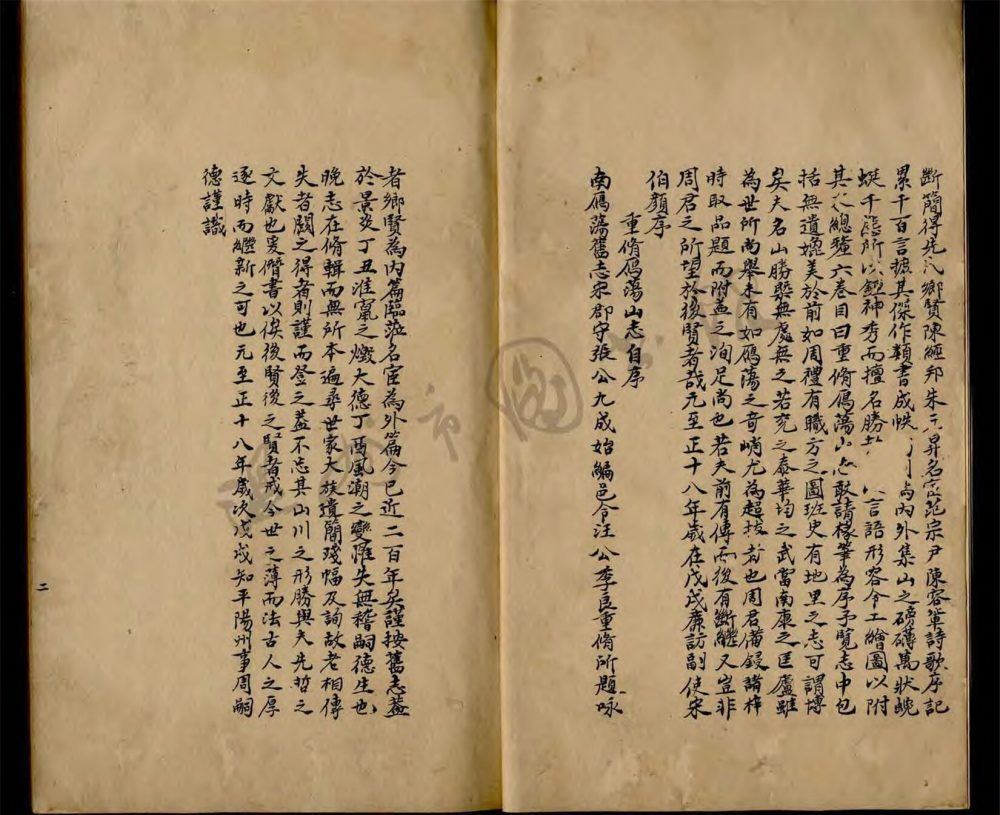 斷簡得先民鄉賢陳經邦朱昇名宦范宗尹陳容輩詩歌序記
累千百言摭其傑作類書成帙內外集山之磅礴萬狀蜿
蜒千態所以鍾神秀而擅名勝言語形容今工繪圖以附
其总總釐六卷目曰重脩鴈蕩山志敢請椽筆為序予覽志中包
括無遺媲美於前如周禮有職方之圖班史有地里之志可謂博
矣夫名山勝槩無處無之若兖之泰華均之武當南康之匡廬雖
為世所尚舉未有如鴈蕩之奇峭尤為超拔者也周君備錄諸梓
時取品題而附益之洵足尚也若夫前有傳而後有斷繼又豈非
周君之所望於後賢者哉元至正十八年歲在戊戌廉訪副使宋
伯顏序
重脩鴈蕩山志自序
南鴈蕩舊志宋郡守張公九成始編邑令汪公季良重脩所題咏
者鄉賢為內篇臨蒞名宦為外篇今已近二百年矣謹按舊志蓋
於景炎丁丑淮竄之燬大德丁酉風潮之變罹失無稽嗣德生也
晚志在脩輯而無所本遍尋世家大族遺簡殘幅及詢故老相傳
失者闕之得者則謹而登之蓋不忘其山川之形勝與夫先哲之
文獻也爰僭書以俟後賢後之賢者戒今世之薄而法古人之厚
逐時而繼新之可也元至正十八年歲次戊戌知平陽州事周嗣
德謹識
二